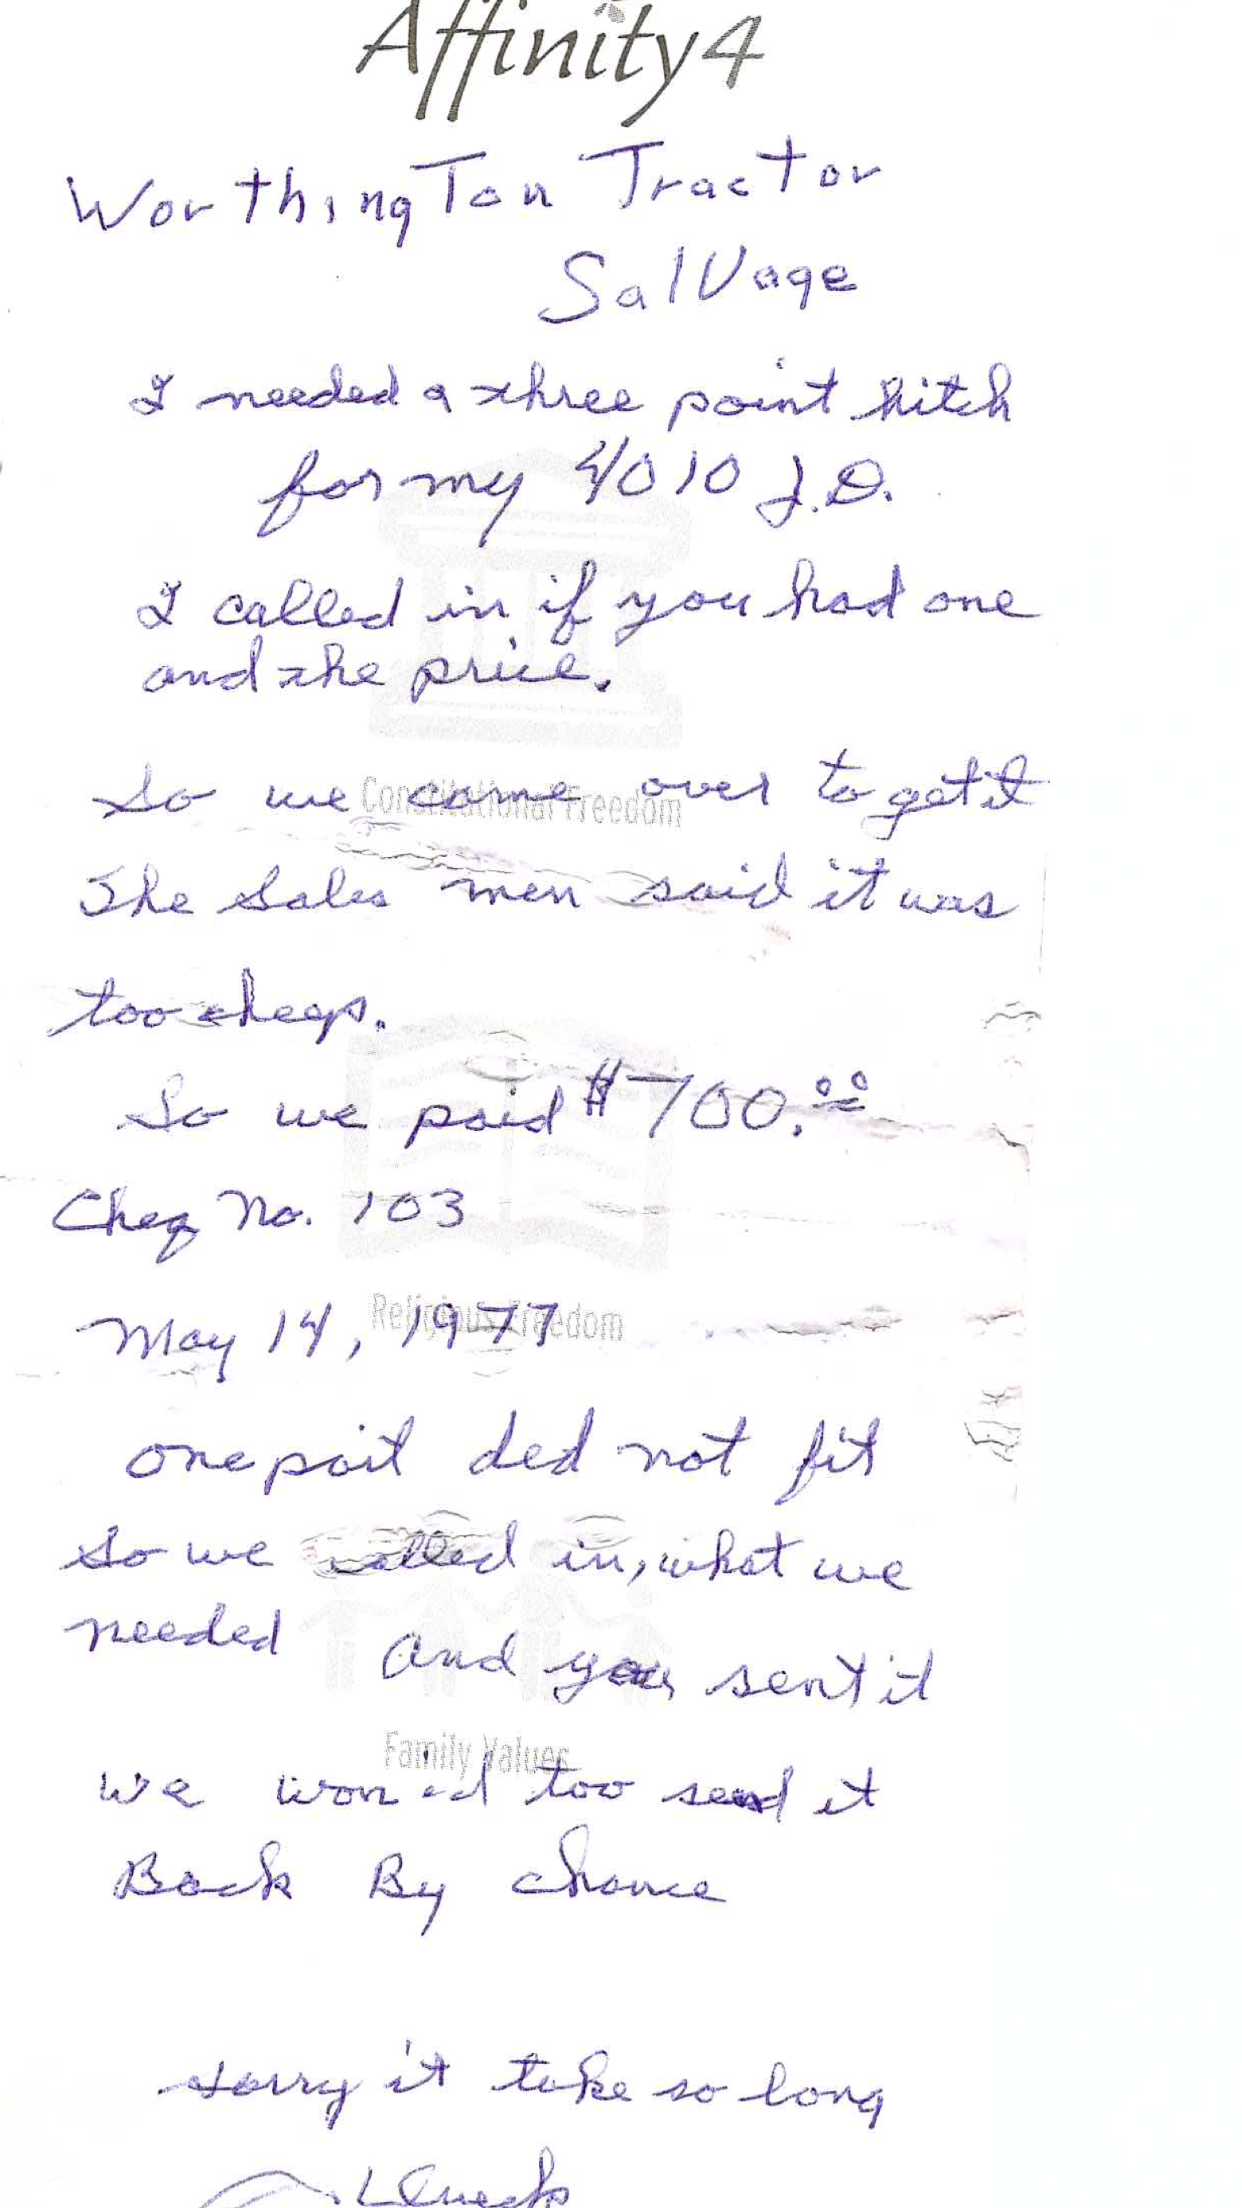 Affinity4
Worthington Tractor
Salvage
I needed a three point hitch
for my 4010 J.D.
I called in if you had one
and the price.
So we came over to get it
Constitutional Freedom
The Sales men said it was
too cheap.
So we paid $700.00
Cheq No. 103
May 14, 1977
Religious Freedom
one part ded not fit
so we called in, what we
needed and you sent it
Family Values
we too send it
Back By chance
sorry it take so long